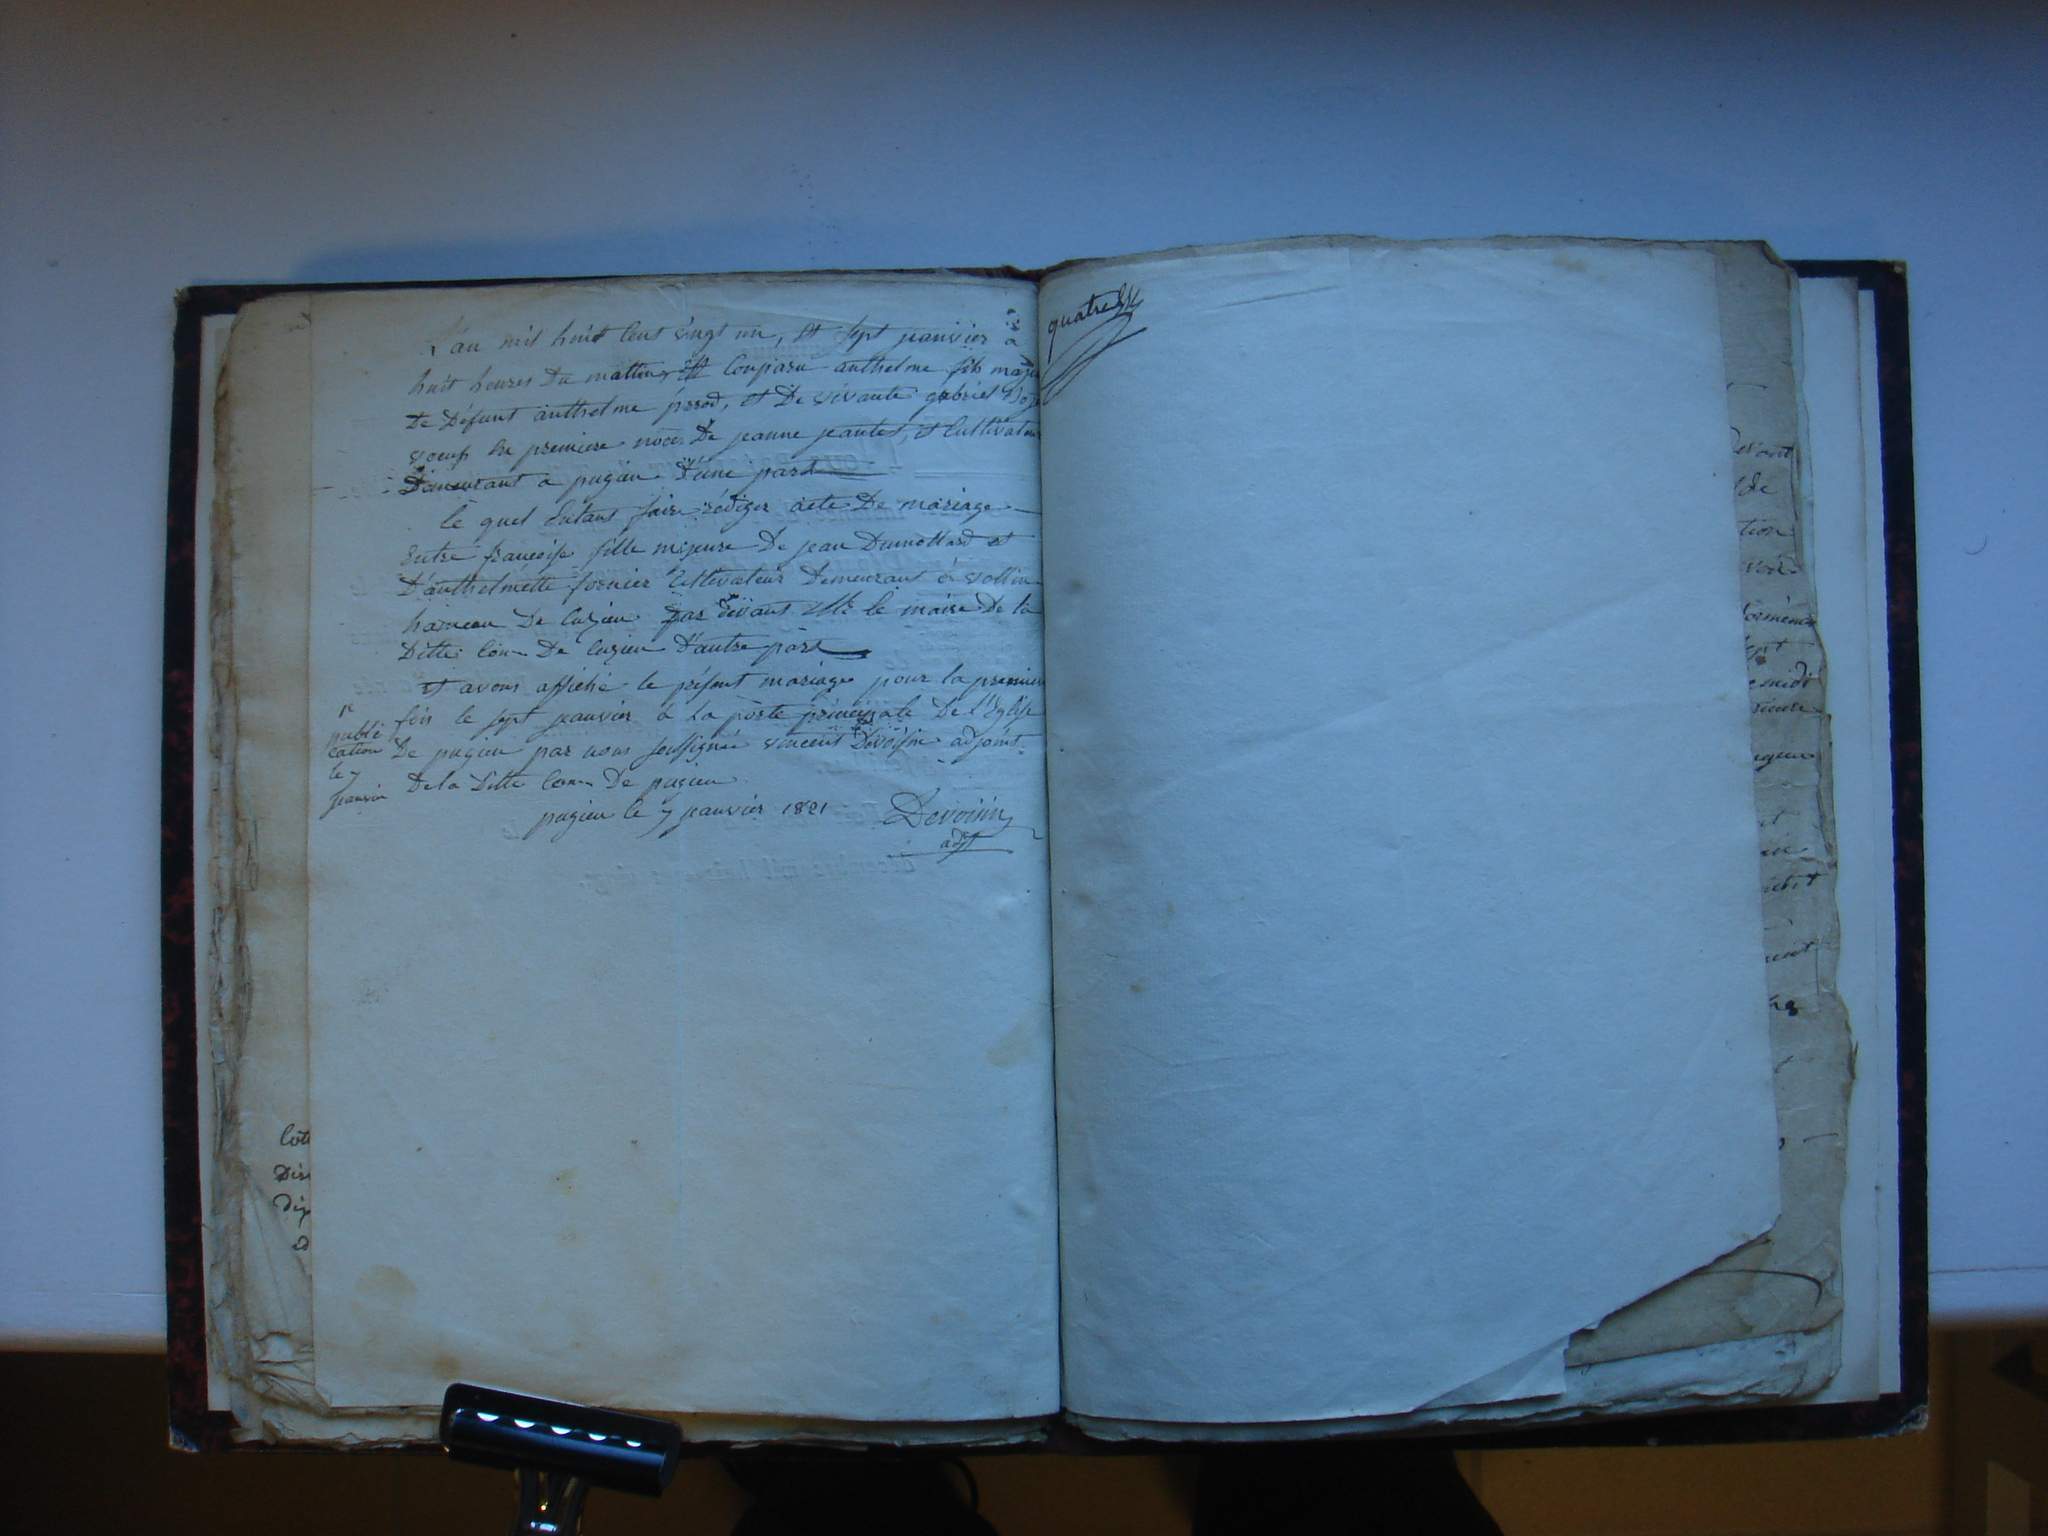 L'an mil huit cent vingt un, et sept janvier à
huit heures du mattin est Comparu anthelme fils maje
De Défunt anthelme perod, et De vivante gabriel
voeuf de premiere noces De jeanne jeantet, et Cultivateur
Demeurant a pugieu d'une part
le quel Entant faire rédiger acte De mariage
Entre françoise fille majeure De jean Dumollard et
D'anthelmette fornier Cultivateur Demeurant à vollin
hameau De Cuzieu par devant Mr le maire De la
Ditte Com De Cuzieu d'autre part
et avons affiché le présent mariage pour la premiere
fois le sept janvier à la porte principale De l'Eglise
De pugieu par nous soussignée vincent Devoisin adjoint
De la Ditte Com De pugieu
pugieu le 7 janvier 1821 Devoisin
adjt
1e
publi
cation
le 7
janvier
quatre
Devant
de
tion
midi
Cot
Dis